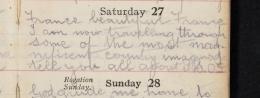 Saturday 27
France beautiful France
I am now travelling through
some of the most mag-
nificent country imaginable
tell you all about it
Rogation
Sunday.
Sunday 28
God guide me home to